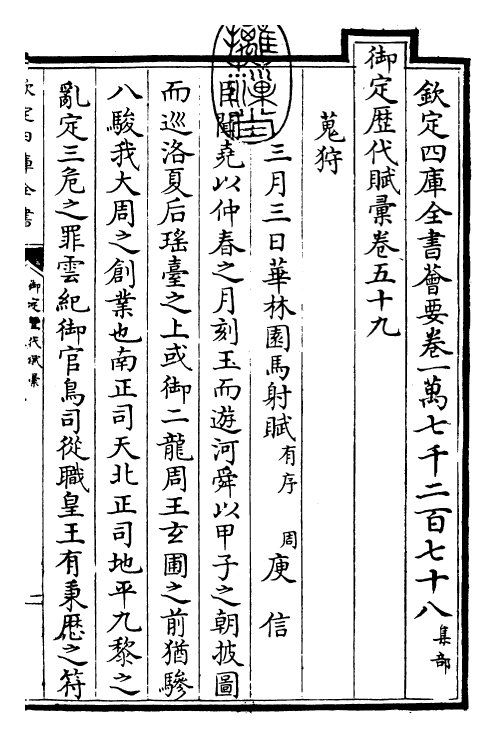 欽定四庫全書薈要卷一萬七千二百七十八 集部
御定歷代賦彙卷五十九
蒐狩
三月三日華林園馬射賦 有序 周 庾信
臣聞堯以仲春之月刻玉而遊河舜以甲子之朝披圖
而巡洛夏后瑤臺之上或御二龍周王玄圃之前猶驂
八駿我大周之創業也南正司天北正司地平九黎之
亂定三危之罪雲紀御官鳥司從職皇王有秉歷之符
欽定四庫全書
御定歷代賦彙